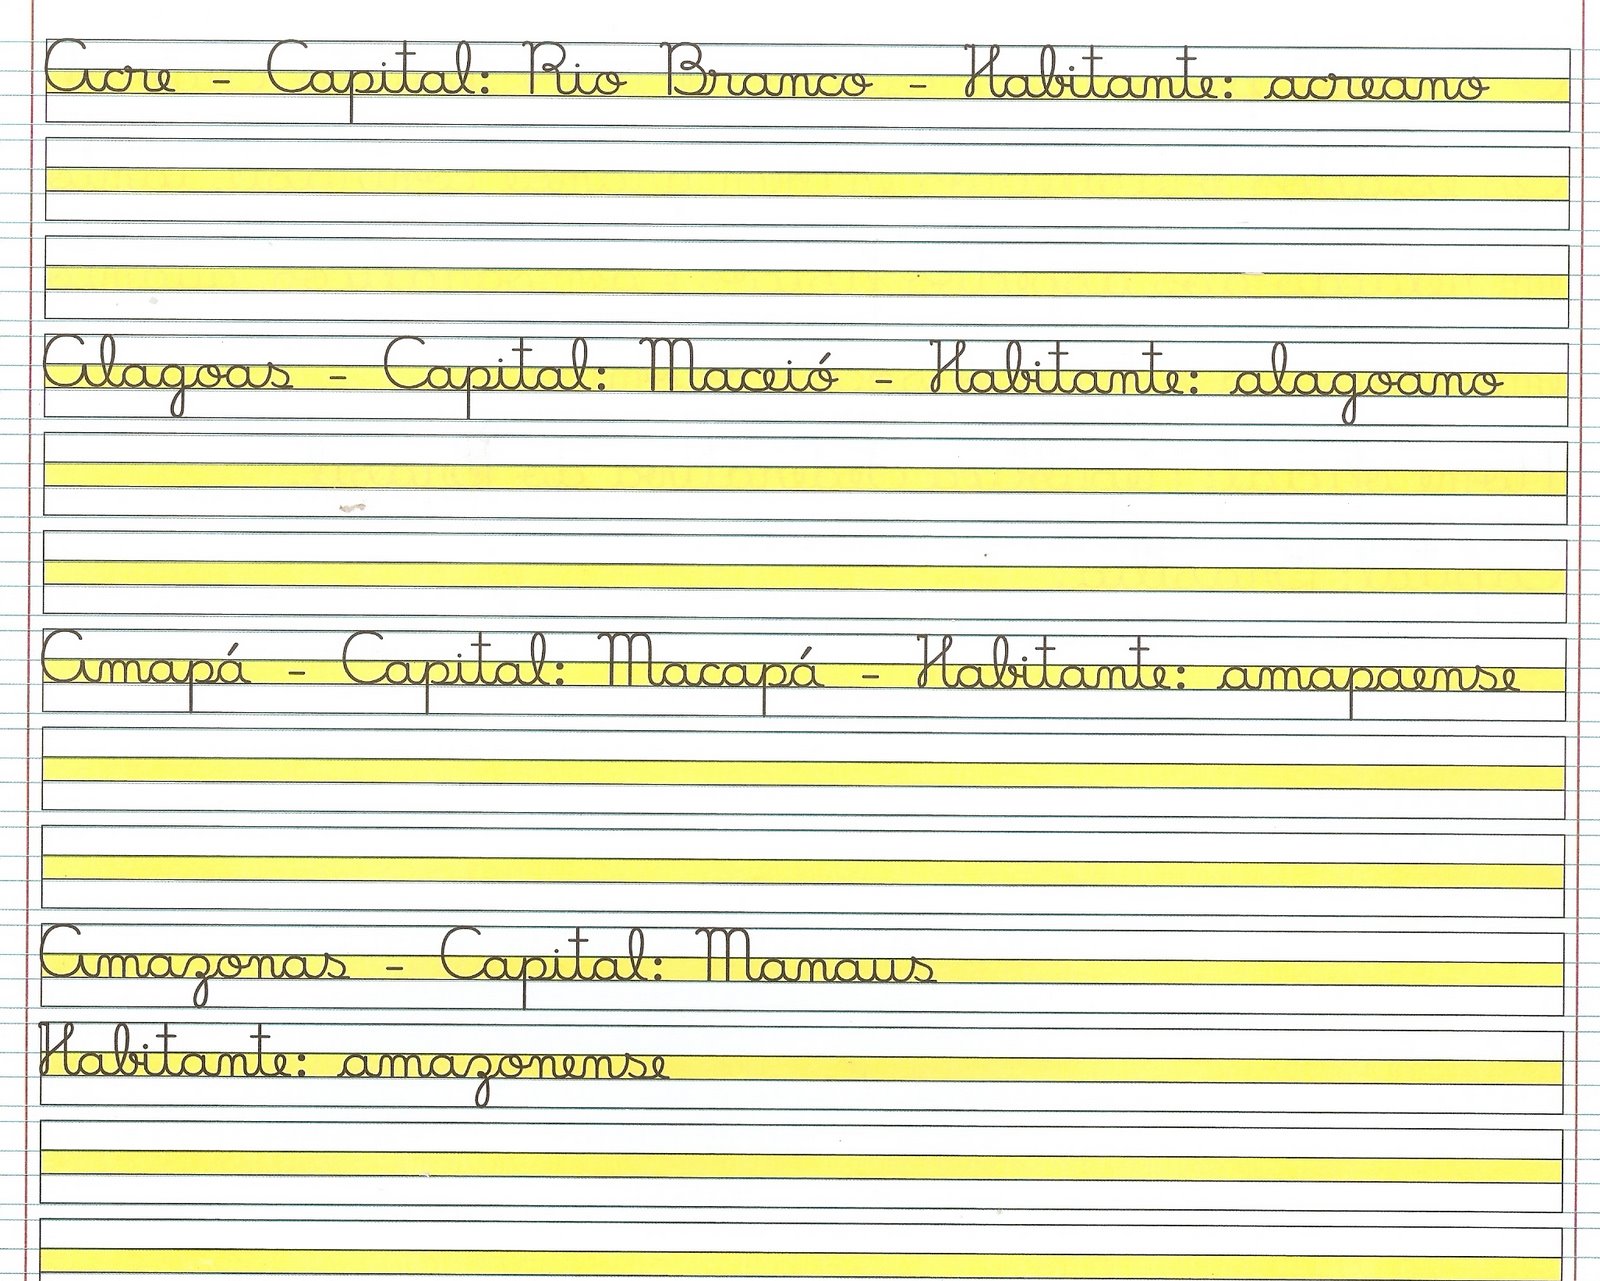 Acre - Capital: Rio Branco - Habitante: acreano
Alagoas - Capital: Maceió - Habitante: alagoano
Amapá - Capital: Macapá - Habitante: amapaense
Amazonas - Capital: Manaus
Habitante: amazonense